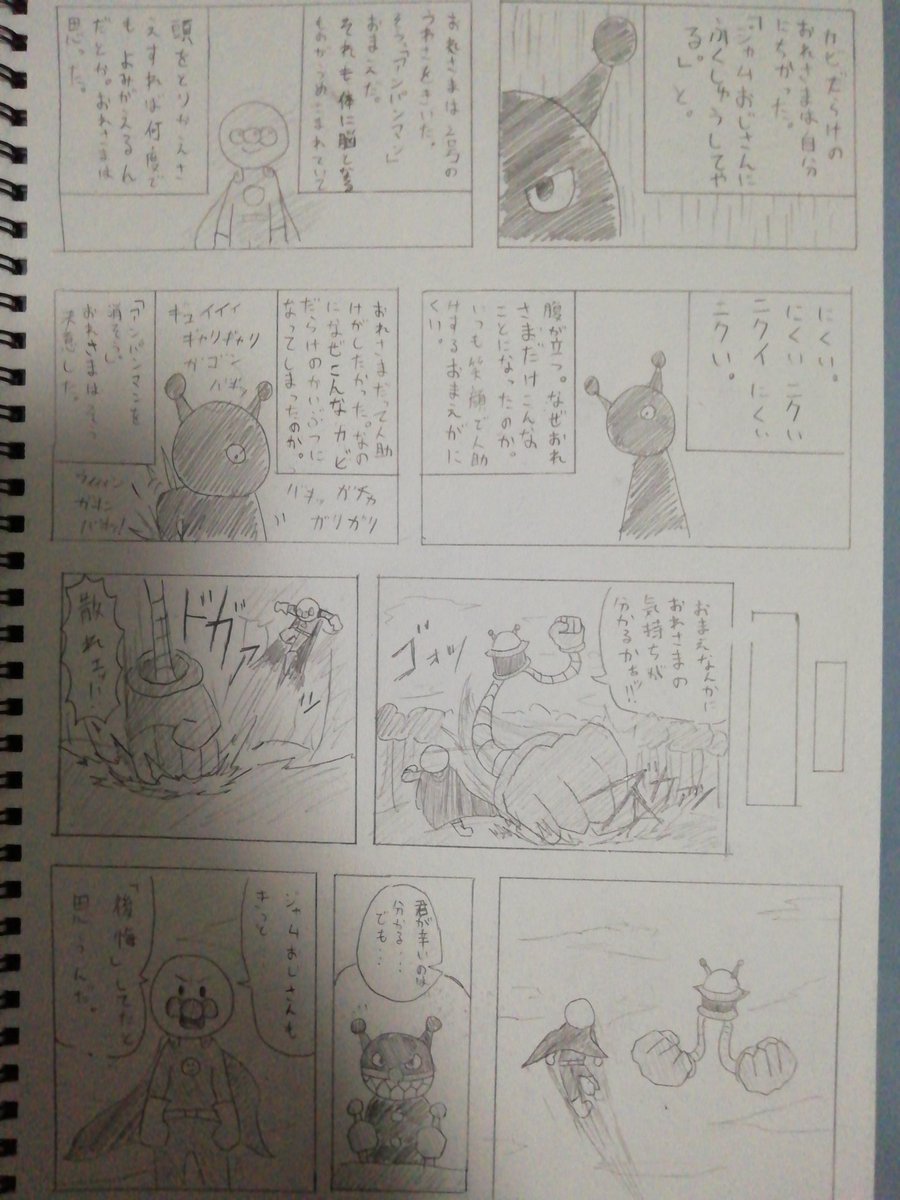 カビだらけの
おれさまは自分
にちかった。
「ジャムおじさんに
ふくしゅうしてや
る。」と。
おれさまは2号の
うわさをきいた。
そう、「アンパンマン」
おまえだ。
それも体に脳となる
ものがうめこまれていて
頭をとりかえさ
えすれば何度で
もよみがえるん
だとか。おれさまは
思った。
にくい。
にくい ニクい
ニクイ にくい
ニクい。
腹が立つ。なぜおれ
さまだけこんな
ことになったのか。
いつも笑顔で人助
けするおまえがに
くい。
おれさまだって人助
けがしたかった。なの
になぜこんなカビ
だらけのかいぶつに
なってしまったのか。
ギュイイイ
ギャリギャリ
ガゴン
バギッ
バギッ ガガガ
ガリガリ
「アンパンマンを
消そう。」
おれさまはそう
決意した。
ウイイイン
ガキン
バキッ!
おまえなんかに
おれさまの
気持ちが
分かるかぁ!!
ゴオッ
ドガァッ
散れェッ!!
君が辛いのは
分かる…
でも…
ジャムおじさんも
きっと…
「後悔」してたと
思うんだ。